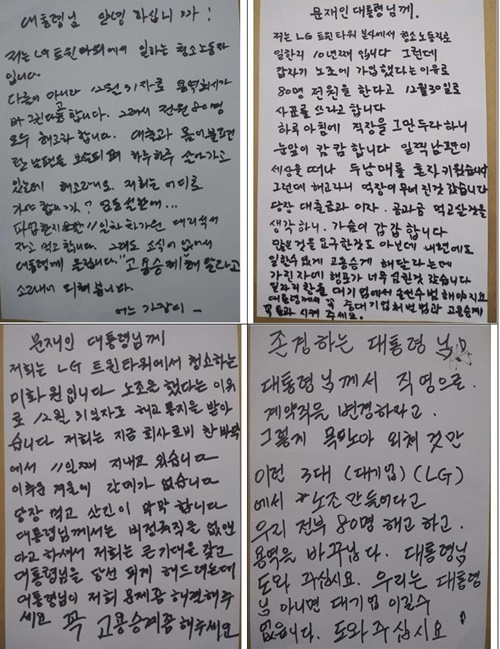 대통령님 안녕 하십니까!
저는 LG 트윈타워에서 일하는 청소노동자
입니다.
다름이 아니라 12월31자로 용역회사가
바뀐다고 합니다. 그래서 전원 80명
모두 해고라 합니다. 대출과 몸이 불편
한 남편을 보살피며 하루하루 살아가고
있는데 해고라니요. 저희는 어디로
가야 합니까? 엄동설한에...
파업한지 11일차 차가운 대리석에서
자고 먹고 합니다. 그래도 소식이 없어
대통령께 올립니다. "고용승계"해 달라고
소리내어 외쳐 봅니다.
어느 가장이 -
문재인 대통령님께.
저희는 LG 트윈타워 본사에서 청소노동자로
일한지 10년째 입니다 그런데
갑자기 노조에 가입했다는 이유로
80명 전원을 한다고 12월30일로
사표를 쓰라고 합니다
하루 아침에 직장을 그만 두라하니
눈앞이 캄캄 합니다 일찍 남편이
세상을 떠나 두남매를 혼자 키웠습니다
그런데 해고라니 억장이 무너진것 같습니다
당장 대출금과 이자. 공과금 먹고살것을
생각하니. 가슴이 갑갑 합니다
많은것을 요구한것도 아닌데 내년에도
일할수있게 고용승계 해달라는데
가진자에 행포가 너무 심한것 같습니다
대기업에서
대통령께서 꼭 고용승계
주세요.
문재인 대통령님께
저희는 LG 트윈타워에서 청소하는
미화원입니다 노조를 했다는 이유
로 12월 31일자로 해고 통지을 받아
습니다 저희는 지금 회사로비 찬바닥
에서 11일째 지내고 있습니다
이추운 겨울에 갈때가 없습니다
당장 먹고 산길이 막막 합니다
대통령님께서는 비정규직을 없앤
다고 하셔서 저희는 큰기대을 갖고
대통령님을 당선 되게 해드렸는데
대통령님이 저희 문제좀 해결해주
세요 꼭 고용승계좀 해주세요
존경하는 대통령 님
대통령님께서 직영으로.
계약직을 변경하라고.
그렇게 목놓아 외쳐 것만
이런 3대 (대기업) (LG)
에서 노조 만들어다고
우리 전부 80명 해고 하고.
용역을 바꾸남다. 대통령님
도와 주십시요. 우리는 대통령
님 아니면 대기업 이길수
없읍니다. 도와주십시요